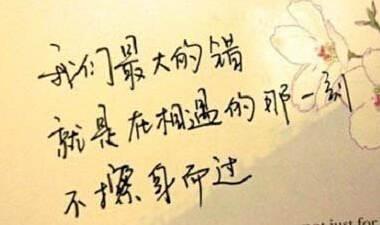 我们最大的错
就是在相遇的那一刻
不擦身而过
just for